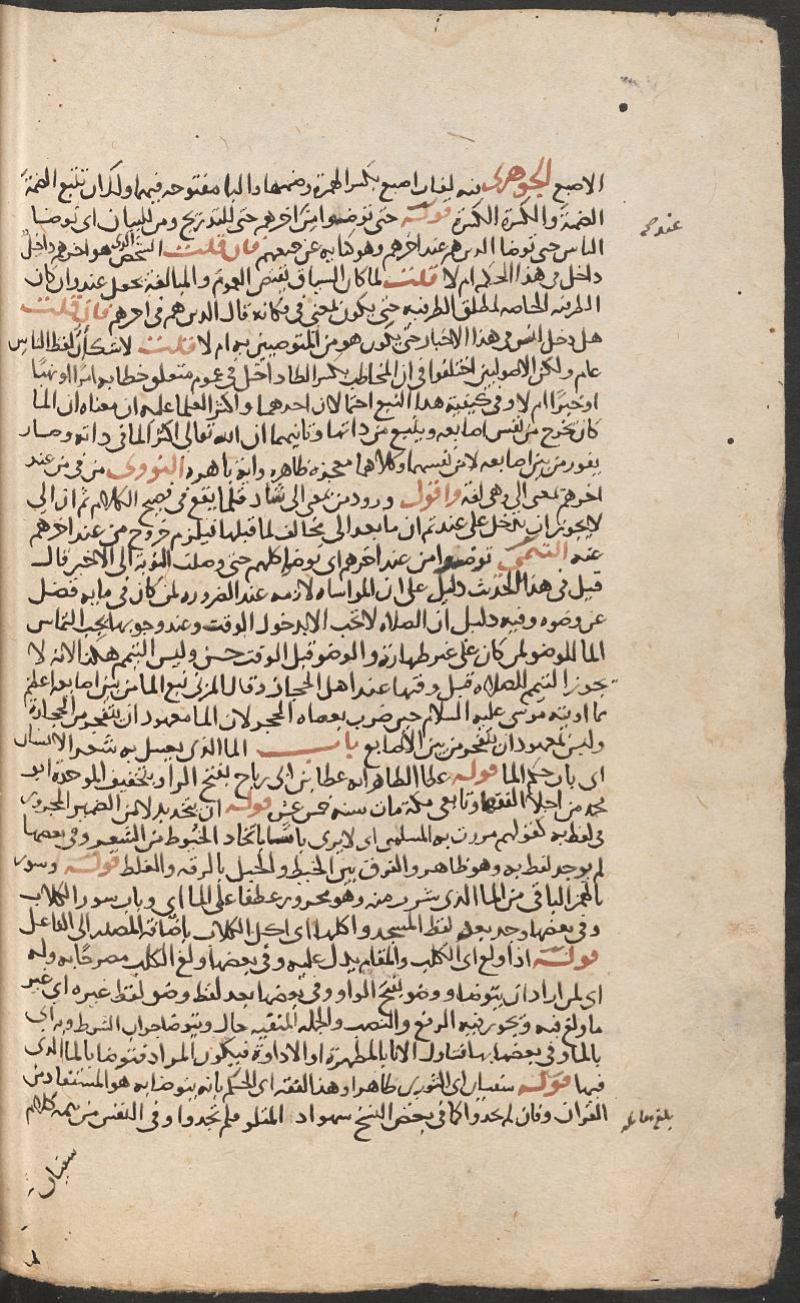 الاصبع الجوهرى فيه لغات اصبع بكسر الهمزة وضمها والبا مفتوحه فيهما ولك ان تتبع الضمة
الضمة والكسرة الكسرة قوله حتى توضوا من عند اخرهم حتى للتدريج ومن للبيان اى توضا
الناس حتى توضا الذين هم عند اخرهم وهو كنايه عن جميعهم فان قلت الشخص الذى هو اخرهم داخل
داخل فى هذا الحكم ام لا قلت لما كان السياق يقتضى العموم والمبالغة يحمل عند وان كان
الظرفيه الخاصه لمطلق الظرفيه حتى يكون بمعنى فى فكانه قال الذين هم فى اخرهم فان قلت
هل دخل انس فى هذا الاخبار حتى يكون هو من المتوضيين به ام لا قلت لا شك ان لفظ الناس
عام ولكن الاصوليين اختلفوا فى ان المخاطب بكسر الطا داخل فى عموم متعلق خطابه امرا او نهيا
او خبرا ام لا وفى كيفية هذا النبع احتمالان احدهما واكثر العلما عليه ان معناه ان الما
كان يخرج من نفس اصابعه وينبع من ذاتها وثانيهما ان الله تعالى اكثر الما فى ذاته وصار
يفور من بين اصابعه لا من نفسها وكلاهما معجزه ظاهره واية باهره النووى من فى من عند
اخرهم بمعنى الى وهى لغة واقول ورود من بمعنى الى شاذ قلما يقع فى فصيح الكلام ثم ان الى
لا يجوز ان يدخل على عند ثم ان ما بعد الى مخالف لما قبلها فيلزم خروج من عند اخرهم
عنه التيمى توضوا من عند اخرهم اى توضا كلهم حتى وصلت النوبة الى الاخر قال
قيل فى هذا الحديث دليل على ان المواساه لازمه عند الضروره لمن كان فى مايه فضل
عن وضوه وفيه دليل ان الصلاه لا تجب الا بدخول الوقت وعند وجوبها يجب التماس
الما للوضو لمن كان على غير طهارة والوضو قبل الوقت حسن وليس التيمم هكذا لانه لا
يجوز التيمم للصلاه قبل وقتها عند اهل الحجاز وقال المزنى نبع الما من بين اصابعه اعظم
مما اوتيه موسى عليه السلام حين ضرب بعصاه الحجر لان الما معهود ان يتفجر من الحجارة
وليس بمعهود ان يتفجر من بين الاصابع باب الما الذى يغسل به شعر الانسان
اى باب حكم الما قوله عطا الظاهر انه عطا بن ابى رباح بفتح الرا وبتخفيف الموحدة ابو
محمد من اجلا الفقها وتابعى مكة مات سنه خمس عشره قوله ان يتخذ بدلا من الضمير المجرور
فى لفظ به كقولهم مررت به المسلمين اى لا يرى باسا باتخاذ الخيوط من الشعر وفى بعضها
لم يوجد لفظ به وهو ظاهر والفرق بين الخيط والحبل بالرقه والغلظ قوله وسور
بالهمز الباقى من الما الذى شرب منه وهو مجرور عطفا على الما اى وباب سور الكلاب
وفى بعضها وجد بعد لفظ المسجد واكلها اى اكل الكلاب باضافة المصدر الى الفاعل
قوله اذا ولغ اى الكلب والمقام يدل عليه وفى بعضها ولغ الكلب مصرحا به وله
اى لمن اراد ان يتوضا ووضو بفتح الواو وفى بعضها بعد لفظ وضو لفظ غيره اى غير
ما ولغ فيه ويجوز فيه الرفع والنصب والجمله المنفيه حال ويتوضا جواب الشرط وبه اى
بالما وفى بعضها بها فتاول الانا بالمطهرة او الاداوة فيكون المراد فتوضا بالما الذى
فيها قوله سفيان اى الثورى ظاهرا وهذا الفقه اى الحكم بانه يتوضا به هو المستفاد من
القران وفان لم يجدوا كما فى بعض النسخ سهو اذ المتلو فلم تجدوا وفى النفس من تتمه كلام
سفيان